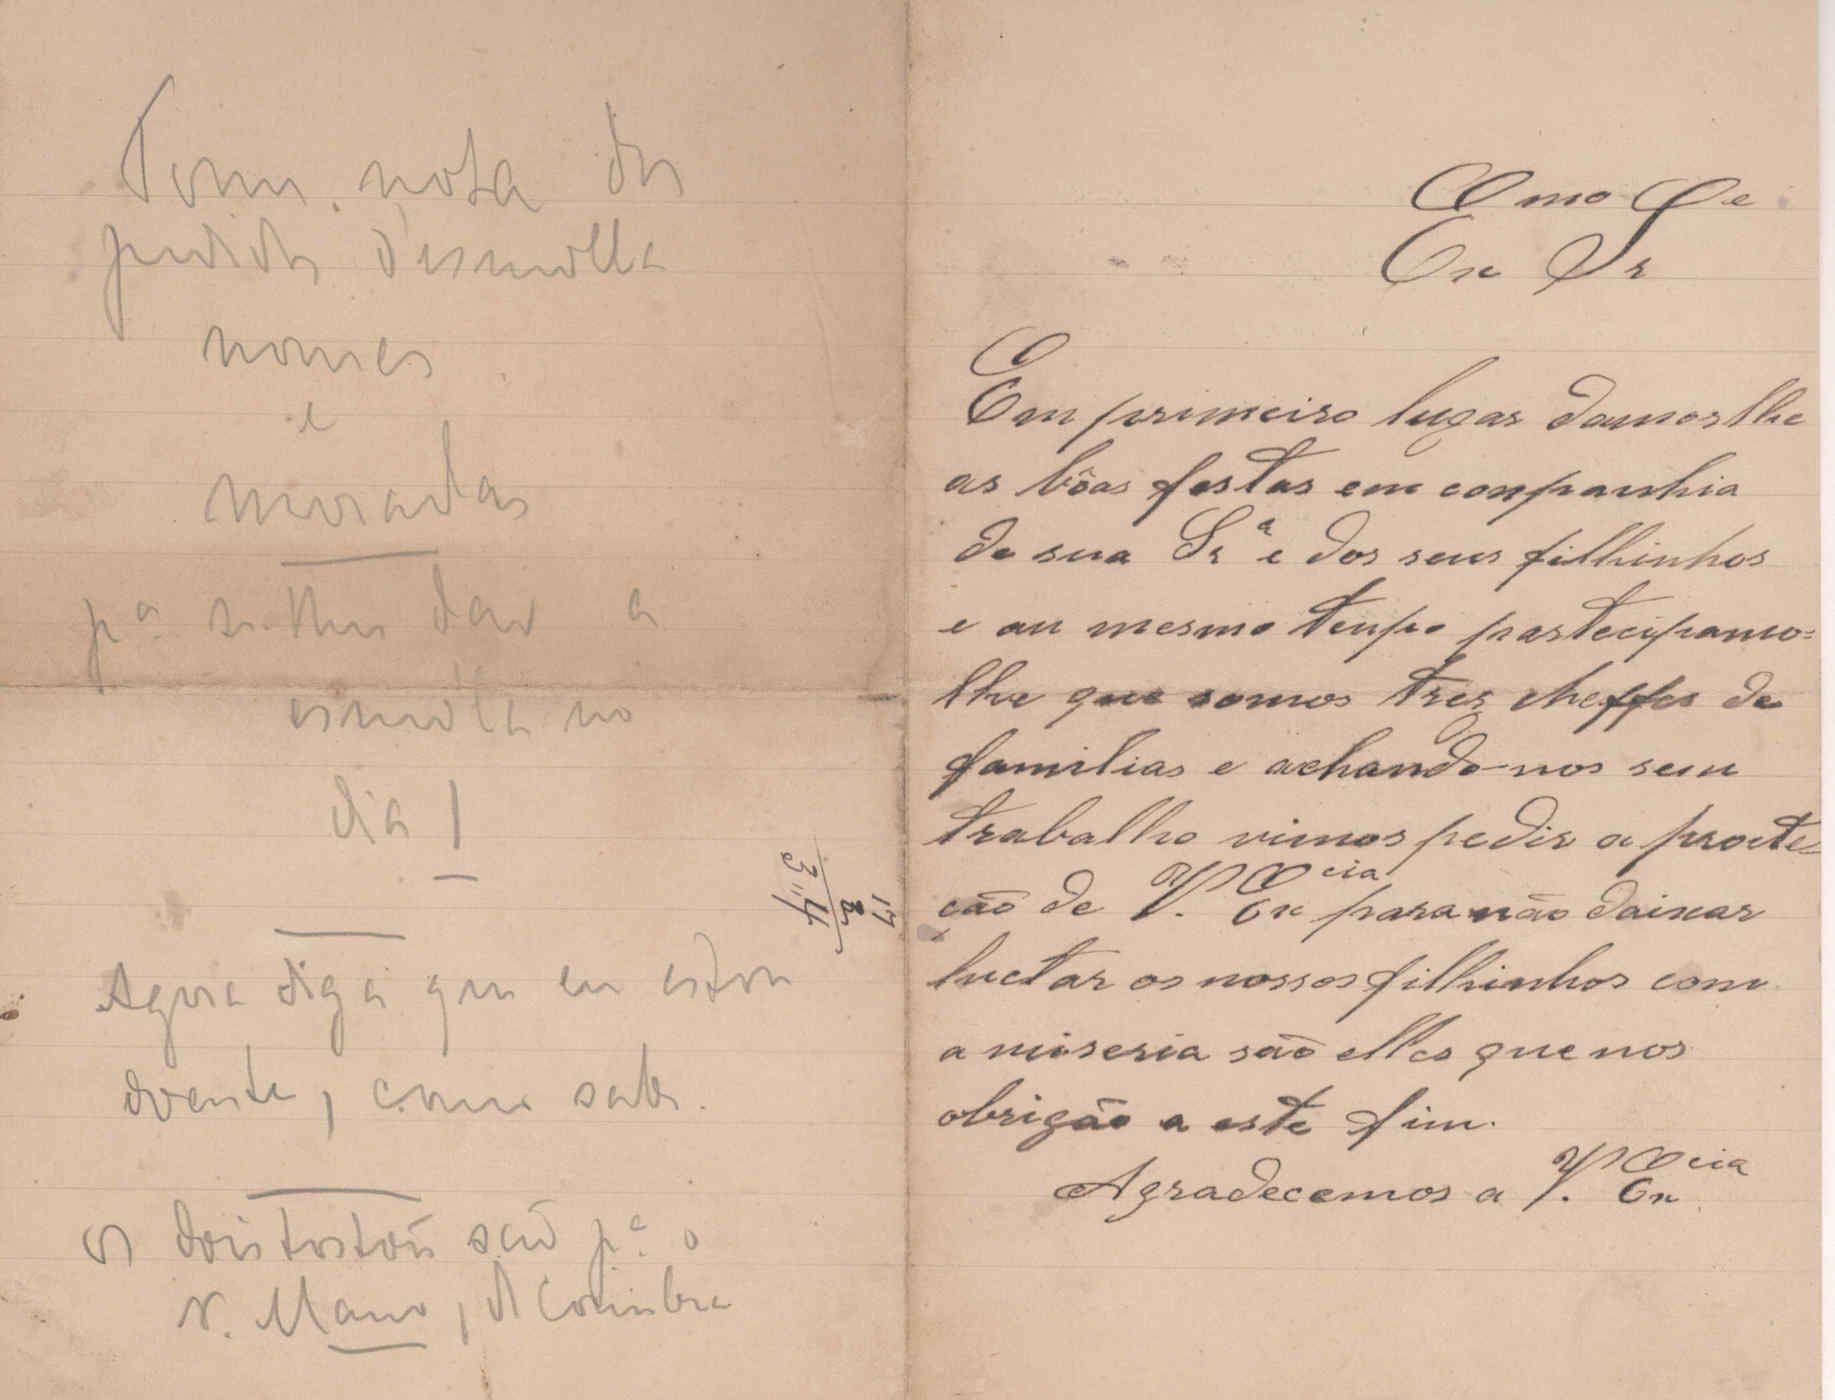 Tome nota dos
pedidos d'esmolla
nomes
e
moradas
pª. se lhes dar a
esmolla no
dia 1
Agora diga que eu estou
doente, como sabe.
Os dois tostões são pª. o
v. Mano, de Coimbra
17
2
34
Emo
Ex Sr
Em primeiro lugar damos lhe
as bôas festas em conpanhia
de sua Srª e dos seus filhinhos
e au mesmo tenpo partecipamo=
lhe que somos tres cheffes de
familias e achando-nos sem
trabalho vimos pedir a prote
cão de V. Excia para não daixar
luctar os nossos filhinhos com
a miseria são elles que nos
obrigão a este fim.
Agradecemos a V. Excia